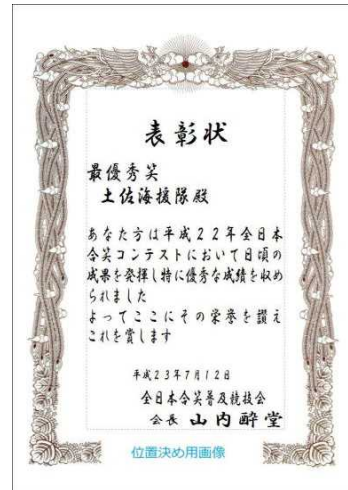 表彰状
最優秀笑
土佐海援隊殿
あなた方は平成22年全日本
合笑コンテストにおいて日頃の
成果を発揮し特に優秀な成績を収め
られました
よってここにその栄誉を讃え
これを賞します
平成23年7月12日
全日本合笑普及競技会
会長 山内酔堂
位置決め用画像